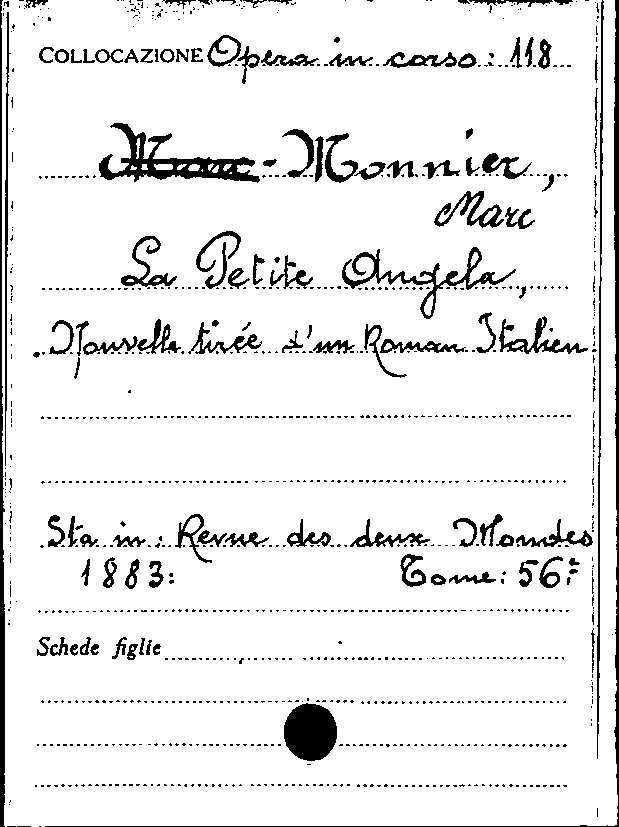 COLLOCAZIONE Opera in corso: 118
Marc - Monnier,
Marc
La Petite Angela,
Nouvelle tirée d'un Roman Italien
Sta in: Revue des deux Mondes
1883: Tome: 56:
Schede figlie